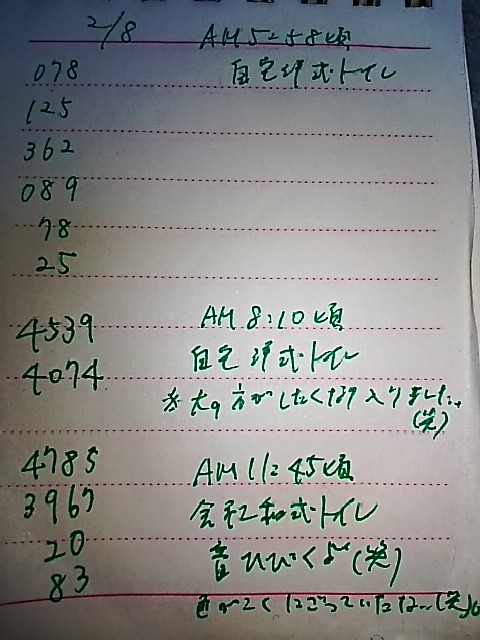 2/8 AM5:58頃
078 自宅洋式トイレ
125
362
089
78
25
4539 AM 8:10頃
4074 自宅洋式トイレ
※大の方がしたくなり入りました。
(笑)
4785 AM11:45頃
3967 会社和式トイレ
20 音ひびくよ"(笑)
83 色がこくにごっていたな…(笑)